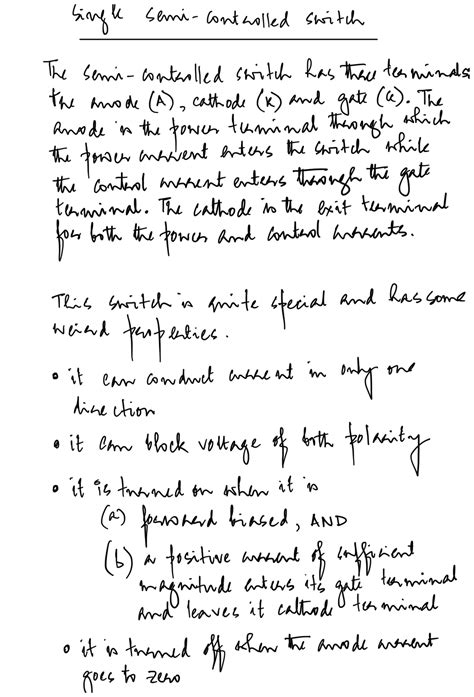 Single semi-controlled switch
The semi-controlled switch has three terminals
the anode (A), cathode (K) and gate (G). The
anode is the power terminal through which
the power current enters the switch while
the control current enters through the gate
terminal. The cathode is the exit terminal
for both the power and control currents.
This switch is quite special and has some
weird properties.
• it can conduct current in only one
direction
• it can block voltage of both polarity
• it is turned on when it is
(a) forward biased, AND
(b) a positive current of sufficient
magnitude enters its gate terminal
and leaves it cathode terminal
• it is turned off when the anode current
goes to zero